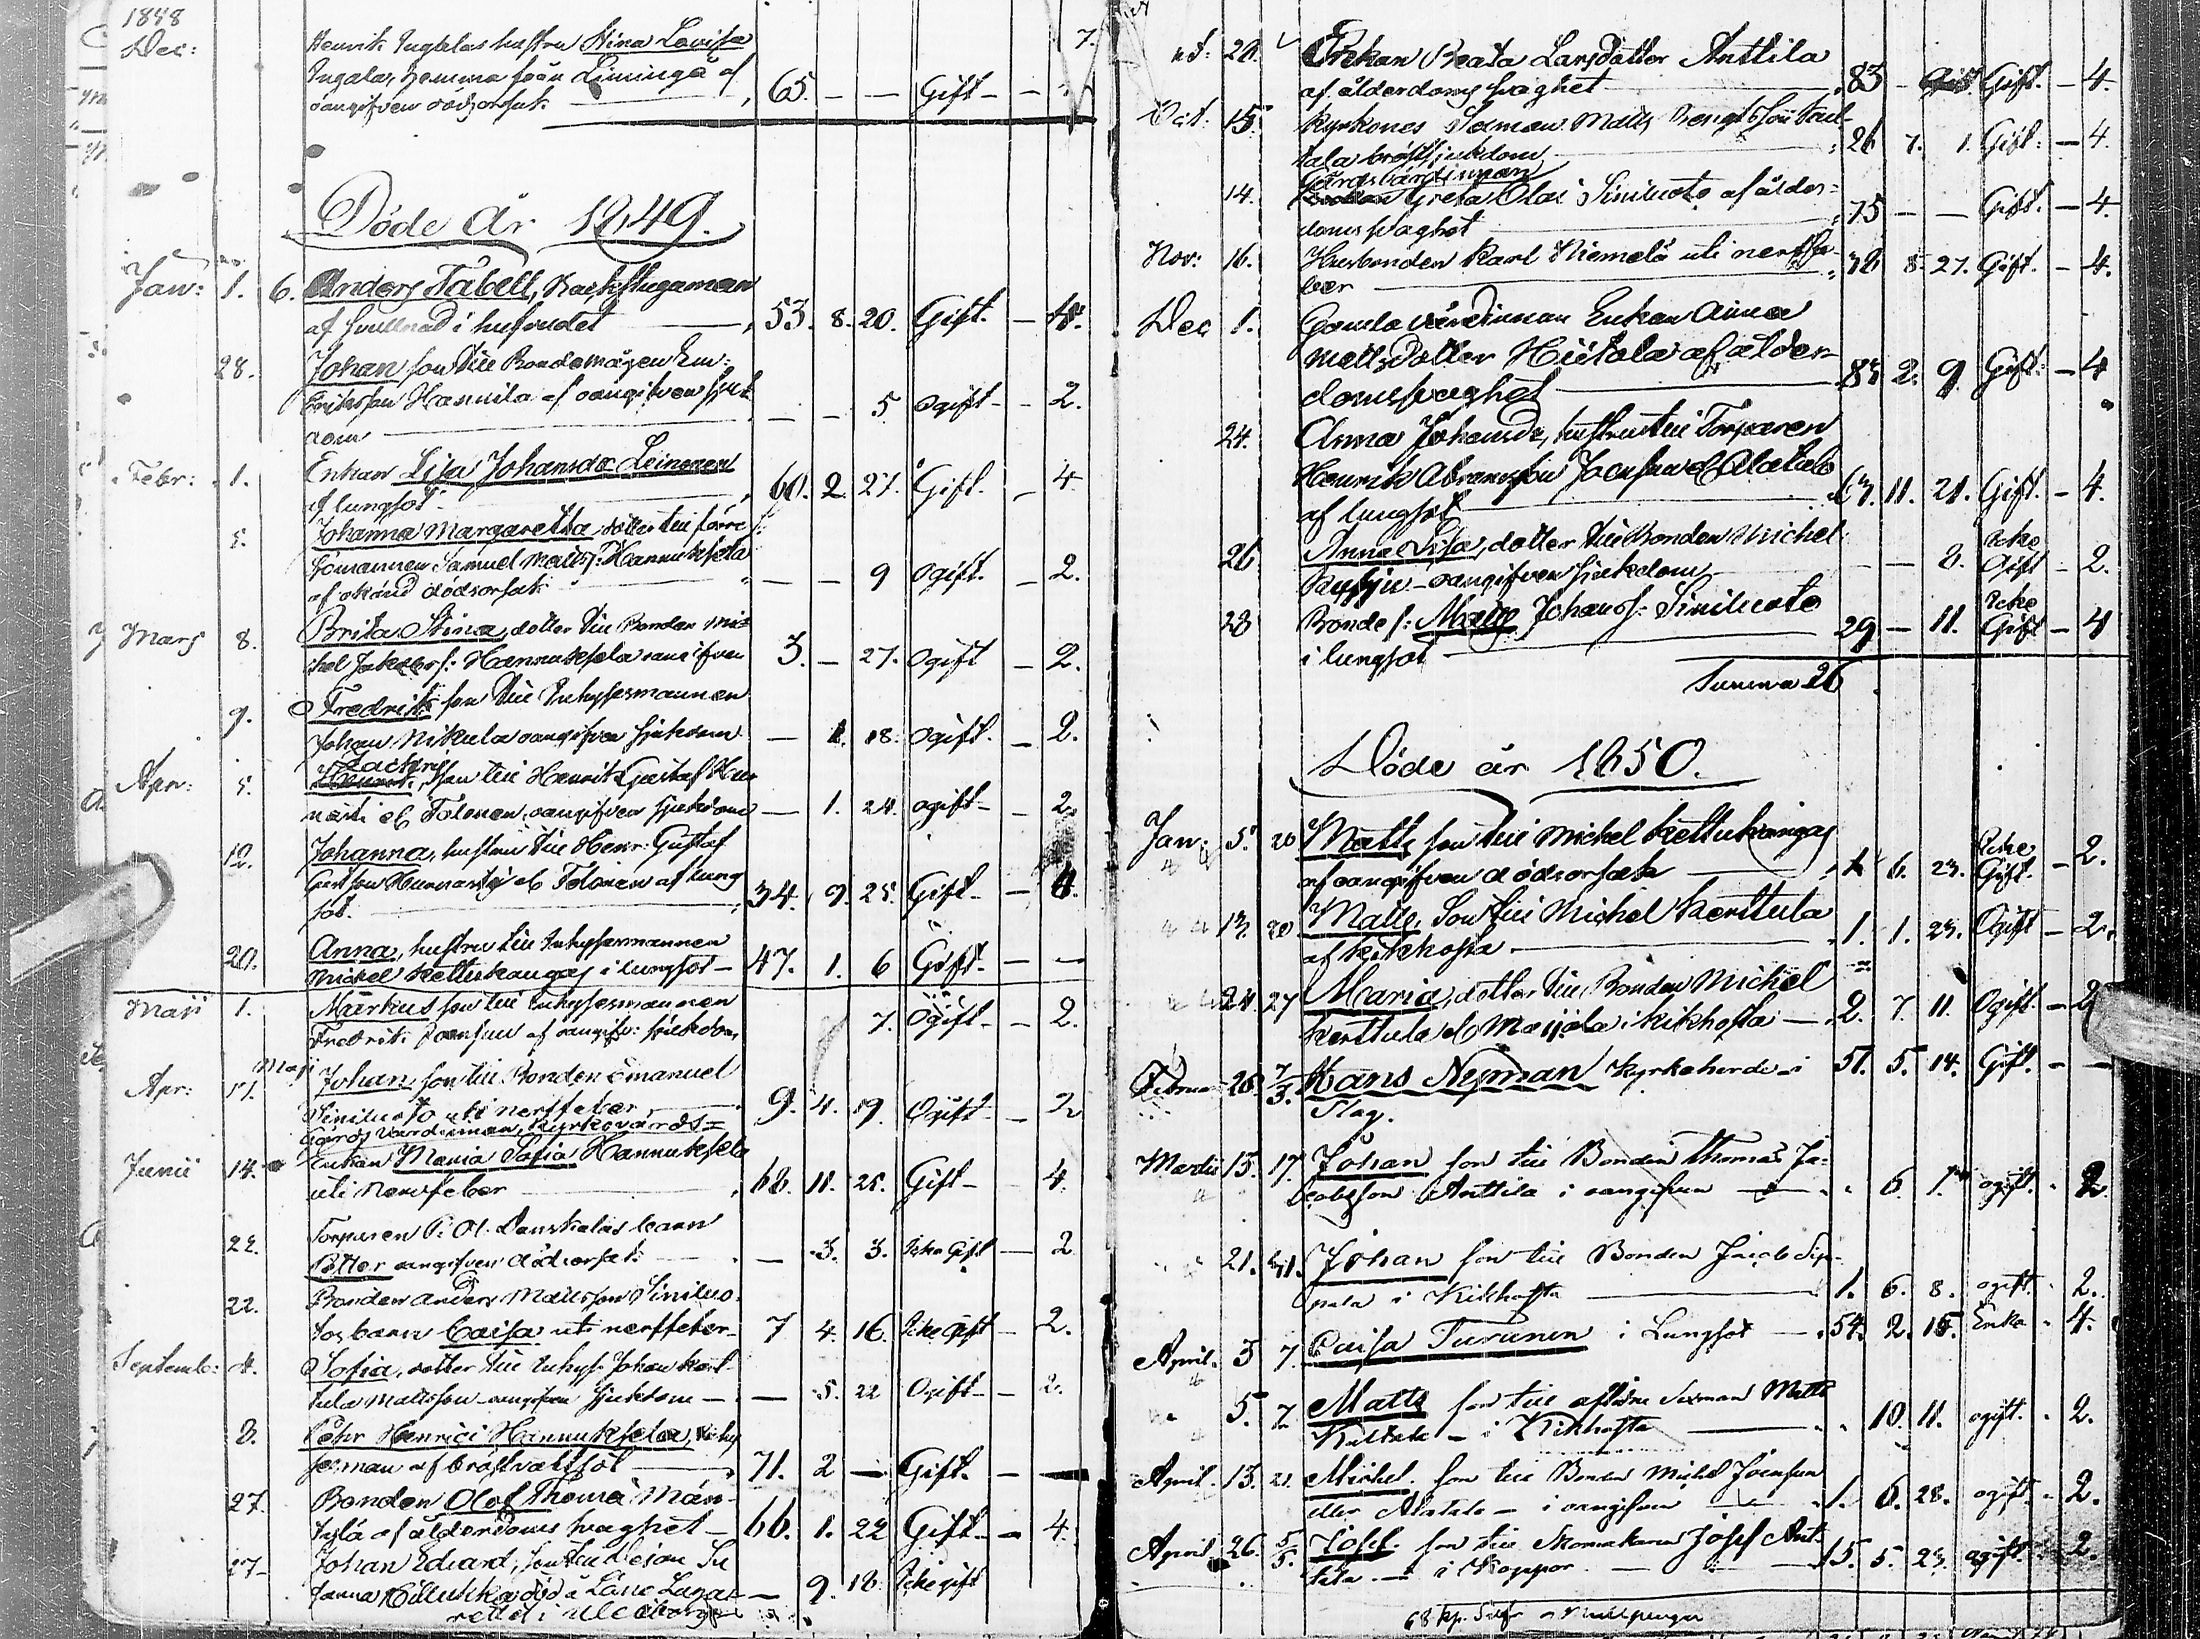 1848
Dec:
Henrik Ingalas hustru Stina Lovisa
Ingalas, hemma från Liminga af
oangifven dödsorsak 65. — — Gift —
Döde År 1849.
Jan: 1. 6. Anders Tabell, Backstugaman
af svullnad i hufvudet 53. 8. 20. Gift. — 4.
28. Johan son till Bondemågen
Eriksson Hannila af oangifven sjuk
dom — — 5 ogift — 2.
Febr: 1. Enkan Lisa Johansdr Leinonen
af lungsot 60. 2. 27. Gift. — 4
5. Johanna Margaretta, dotter till förre
Samuel Matts: Hannuksela
af okänd dödsorsak — — 9 ogift. — 2.
Mars 8. Brita Stina, dotter till Bonden Mi-
chel Jakobs: Hannuksela oangifven 3. — 27. ogift — 2.
9. Fredrik son till Inhysesmannen
Johan Nikula oangifven sjukdom — 1. 18. ogift. — 2.
Apr: 5. Zachris son till Henrik Gustaf
Tolonen, oangifven sjukdom — 1. 24 ogift — 2.
12. Johanna, hustru till Henr: Gustaf
Tolonen af lung
sot. 34. 9. 25. Gift. — 4.
20. Anna, hustru till Inhysesmannen
Michel Kettukangas i lungsot — 47. 1. 6 Gift. — —
Maji 1. Markus son till Inhysesmannen
Fredrik Joensuu af oangifv: sjukdom, 7. Ogift — 2.
Apr: Maji 17. Johan son till Bonden Emanuel
Siniluoto uti nerffeber 9. 4. 19. Ogift — 2
Gårds Värdinnan, Kyrkovärds-
Junii 14. Enkan Maria Sofia Hannuksela
uti Nervfeber 68. 11. 25. Gift — 4.
22. Torparen P. Ol. barn
Petter oangifven dödsorsak — 3. 3. Icke Gift — 2
22. Bonden Anders Mattsson Siniluo-
tos barn Caisa uti nerffeber 7 4. 16. Icke Gift — 2.
Septemb: 4. Sofia, dotter till Inhys: Johan Kert-
tula Mattsson oangifven sjukdom — — 5. 22 Ogift — 2.
8. Pehr Henrici Hannuksela, Inhy
sesman af bröstvattsot 71. 2 — Gift. — —
27. Bonden Olof Thomä Män-
tylä af ålderdoms svaghet — 66. 1. 22 Gift — 4
27 — Johan Edvard, son till Dejan Su
sanna död å Läns Lazar-
rettet i Uleåborg — 9. 18. Icke gift
28. Enkan Beata Larsdotter Anttila
af ålderdoms svaghet 83 — Gift. — 4.
Oct: 15. Kyrkones Sexman Matts Bengtsson
bröstsjukdom 26 7. 1. Gift: — 4.
Gårdsvärdinnan
14. Greta Olai Siniluoto af ålder-
doms svaghet 75 — — Gift. — 4.
Nov: 16. Husbonden Karl Niemelä uti nerffe-
ber 38 8. 27. Gift. — 4.
Dec 1. Gamla värdinnan Enkan Anna
Mattsdotter Hietala af ålder-
domssvaghet 2. 9 Gift: — 4
24. Anna Johansdr, hustru till Torparen
Henrik Abramsson Joensuu el. Alatalo
af lungsot 11. 21. Gift. — 4.
26 Anna Lisa, dotter till Bonden Michel
oangifven sjukdom — — 8. Icke Gift — 2.
28 Bondes: Matts Johanss: Siniluoto
i lungsot 29 — 11. Icke Gift — 4
Summa 26
Döde år 1850.
Jan: 5. 20 Matts son till Michel Kettukangas
af oangifven dödsorsak 6. 23. Icke Gift. — 2.
13. 20 Matts, Son till Michel Kerttula
af kikhosta 1. 1. 23. Ogift — 2.
24 27 Maria, dotter till Bonden Michel
Kerttula el. Marjala i kikhosta — 2. 7. 11. Ogift. — 2
Februa 26. 7/3. Hans Nyman Kyrkoherde i 51. 5. 14. Gift. — —
Slag.
Martii 15. 17. Johan son till Bonden Thomas Ja-
cobsson Anttila i oangifven — " 6. 1. ogift. " 2.
21. 31. Johan son till Bonden Jacob Sip-
pala i Kikhosta 1. 6. 8. ogift. " 2.
April. 3 7. Caisa Turunen i Lungsot — 54. 2. 15. Enka. " 4.
5. 7. Matts son till aflidne Sexman Matts
— i Kikhosta " 10. 11. ogift. " 2.
April. 13. 21. Michel. son till Bonden Michel Joensuu
eller Alatalo — i oangifven 1. 6. 28. ogift. " 2.
April 26. 5/5. Josef. son till Skomakaren Josef Ant-
tila — i Koppor 15. 5. 23. ogift. " 2.
68 kp. Silfr